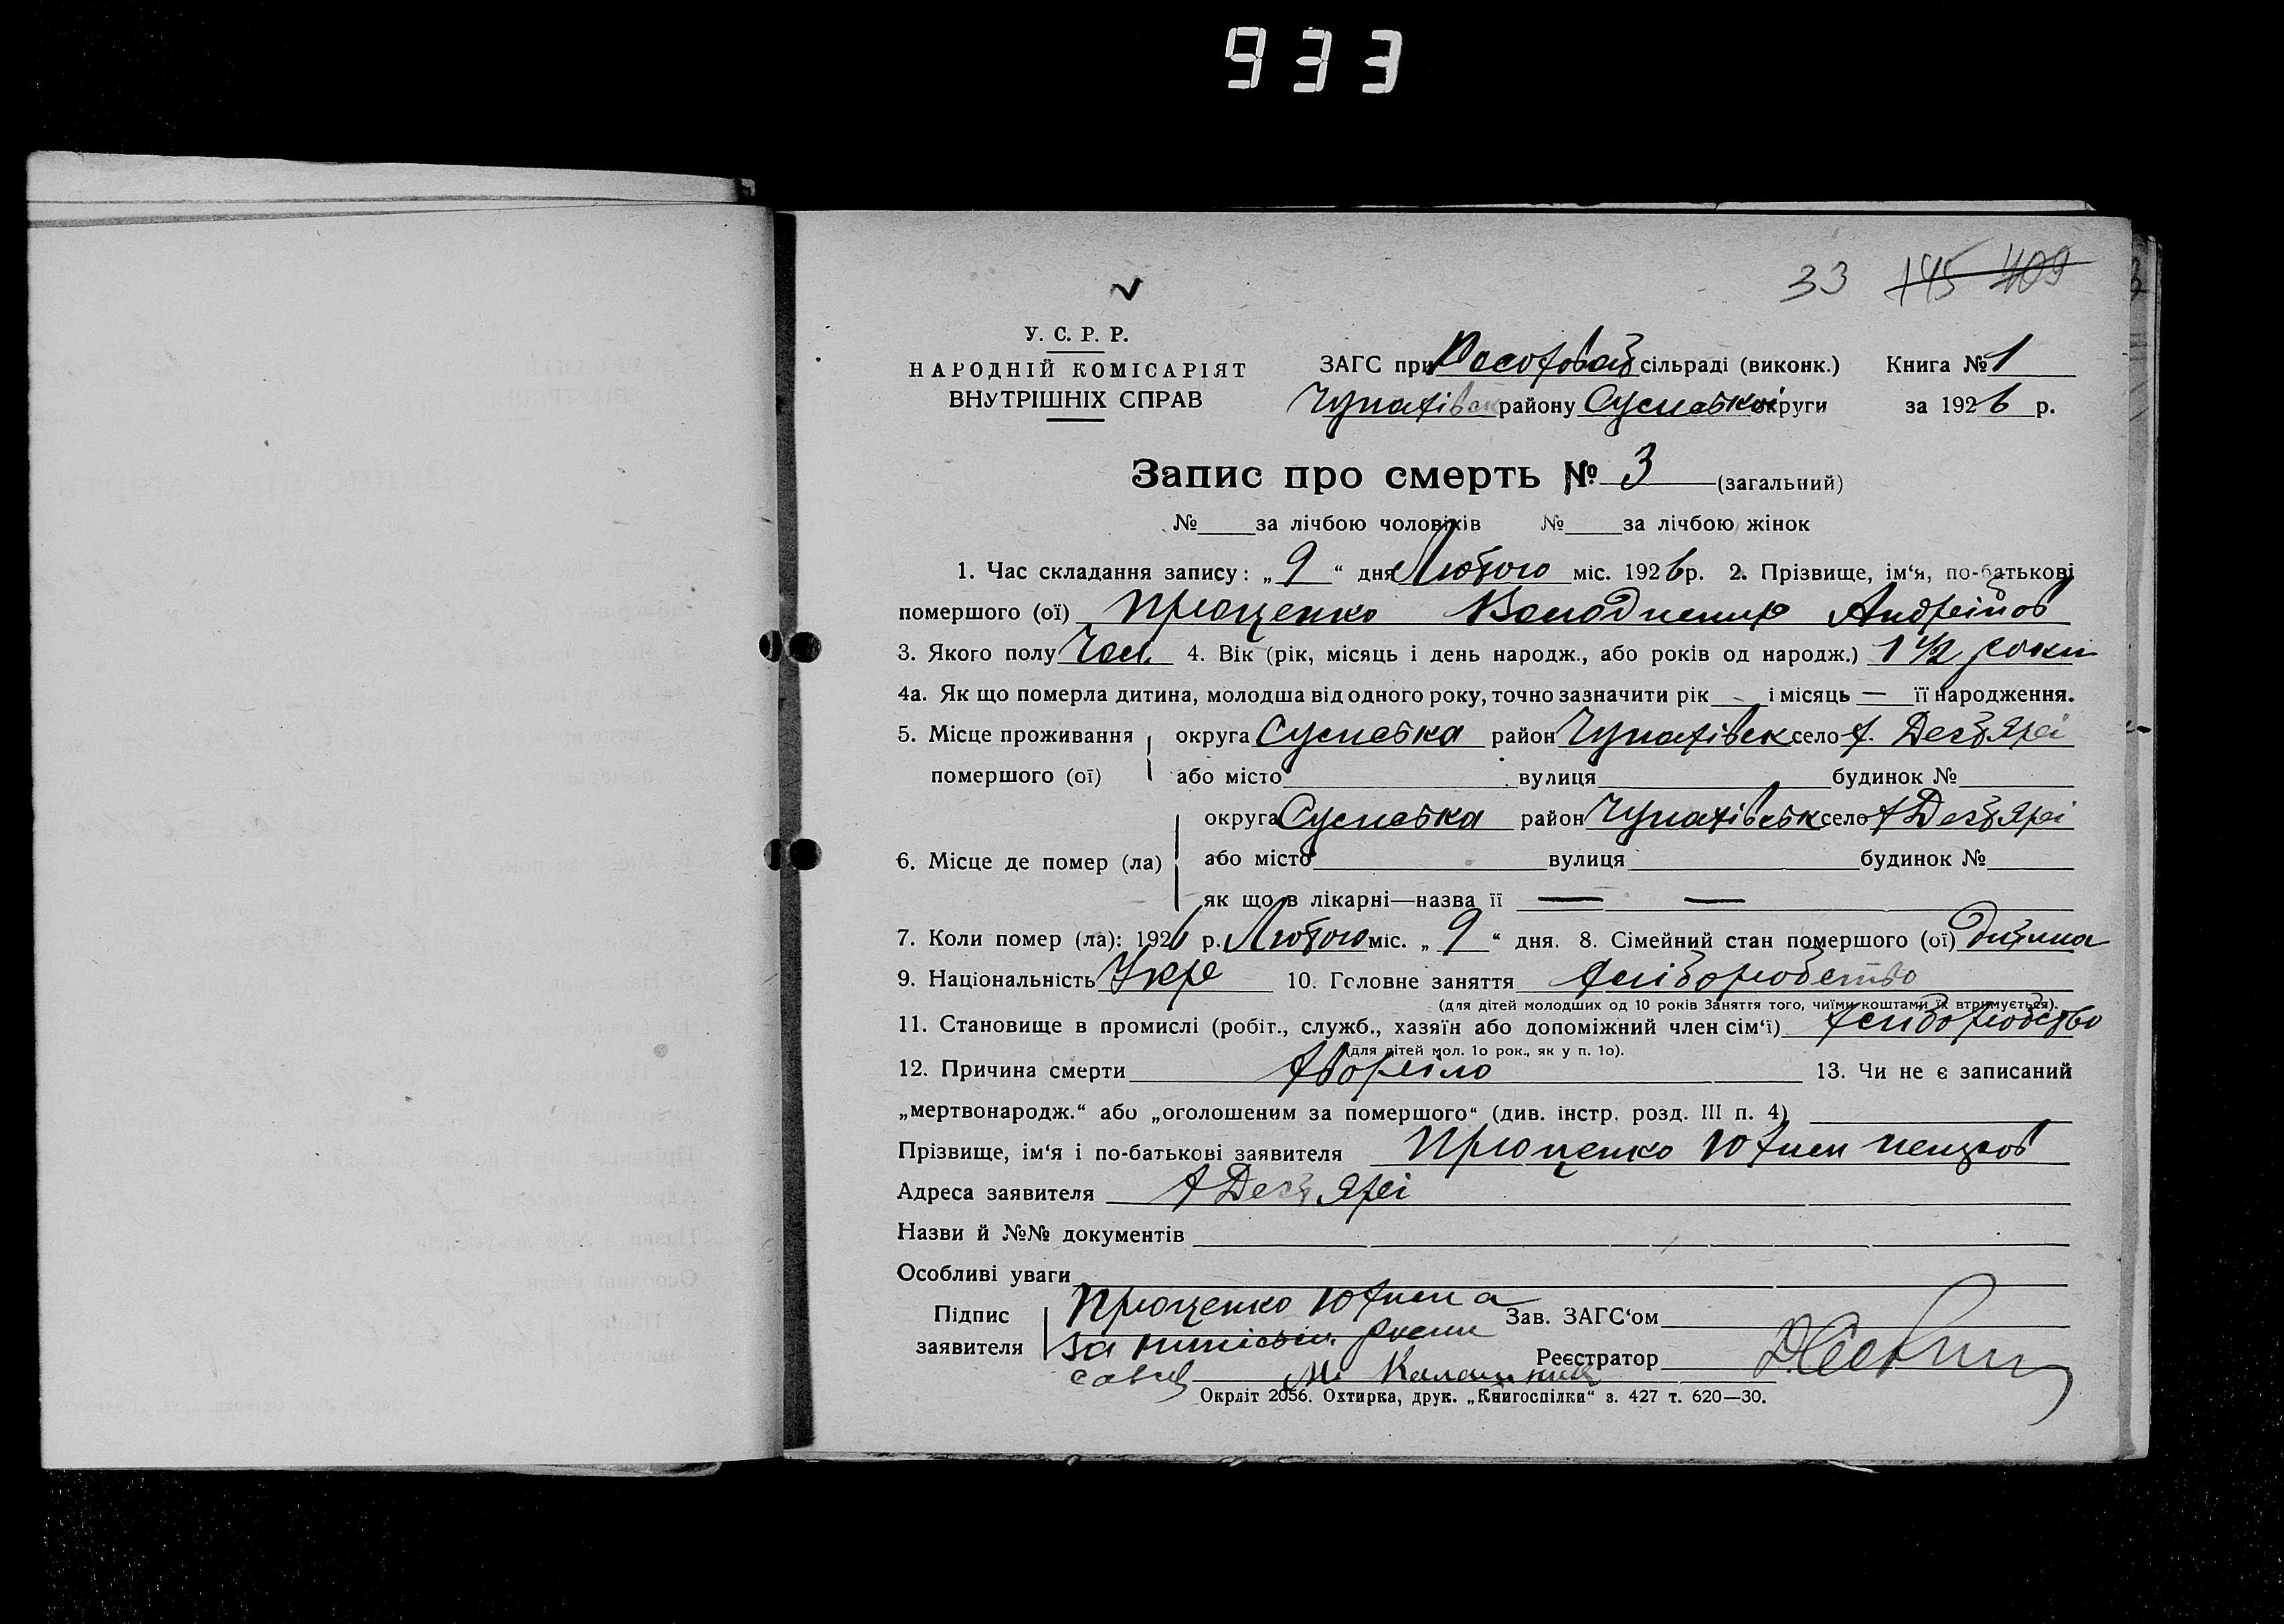 933
33 145 409
У. С. Р. Р.
НАРОДНІЙ КОМІСАРІЯТ
ВНУТРІШНІХ СПРАВ
ЗАГС при сільраді (виконк.) Книга № 1
району округи за 1926 р.
Запис про смерть № 3 (загальний)
№ за лічбою чоловіків № за лічбою жінок
1. Час складання запису: „ 9 “ дня Лютого міс. 1926 р. 2. Прізвище, ім‘я, по-батькові
помершого (ої) Проценко Володимир Андрейов
3. Якого полу Чол. 4. Вік (рік, місяць і день народж., або років од народж.) 1 1/2 роки
4а. Як що померла дитина, молодша від одного року, точно зазначити рік — і місяць — її народження.
5. Місце проживання округа Сумська район село
помершого (ої) або місто вулиця будинок №
округа Сумська район село
6. Місце де помер (ла) або місто вулиця будинок №
як що в лікарні—назва її — —
7. Коли помер (ла): 1926 р. Лютого міс. „ 9 “ дня. 8. Сімейний стан помершого (ої) дитина
9. Національність Укр 10. Головне заняття хліборобство
(для дітей молодших од 10 років Заняття того, чиїми коштами їх втримується).
11. Становище в промислі (робіт., служб., хазяїн або допоміжний член сім‘ї) хліборобство
(для дітей мол. 10 рок., як у п. 10).
12. Причина смерти хворіло 13. Чи не є записаний
„мертвонародж.“ або „оголошеним за помершого“ (див. інстр. розд. III п. 4)
Прізвище, ім‘я і по-батькові заявителя Проценко
Адреса заявителя
Назви й №№ документів
Особливі уваги
Підпис Проценко Зав. ЗАГС‘ом
заявителя за
Реєстратор
Окрліт 2056. Охтирка, друк. „Книгоспілки“ з. 427 т. 620—30.